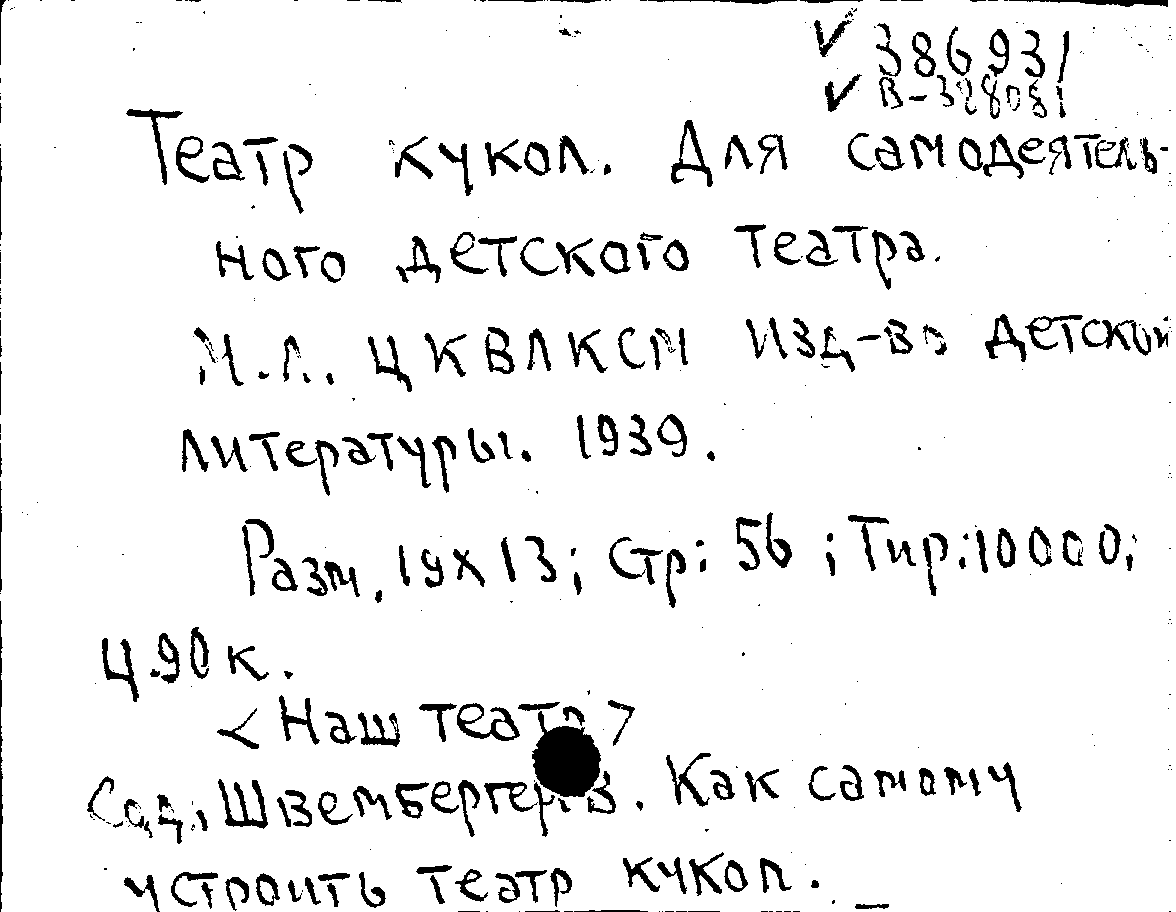 ✓ 386931
✓ В-328081
Театр кукол. Для самодеятель-
ного детского театра.
М.-Л. ЦКВЛКСМ Изд-во детской
литературы. 1939.
Разм. 19х13; Стр: 56; Тир: 10000;
Ц.90к.
<Наш театр>
Сод. Швембергер, В. Как самому
устроить театр кукол.